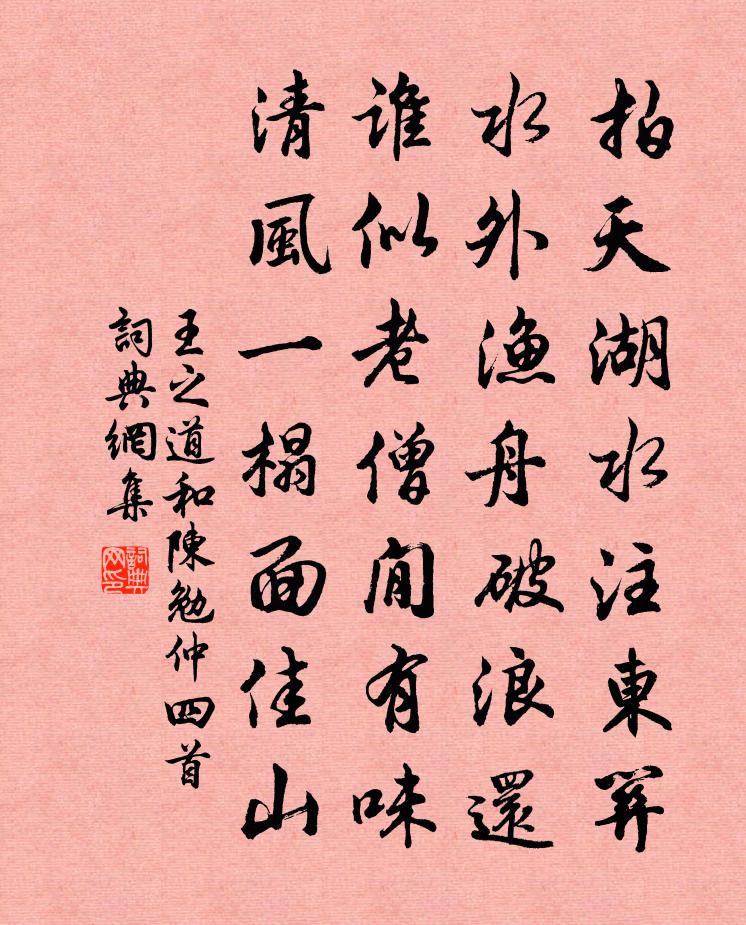 拍天湖水注東關
水外漁舟破浪還
誰似老僧閒有味
清風一榻面佳山
王之道和陳勉仲四首
詞典網集
詞典网印